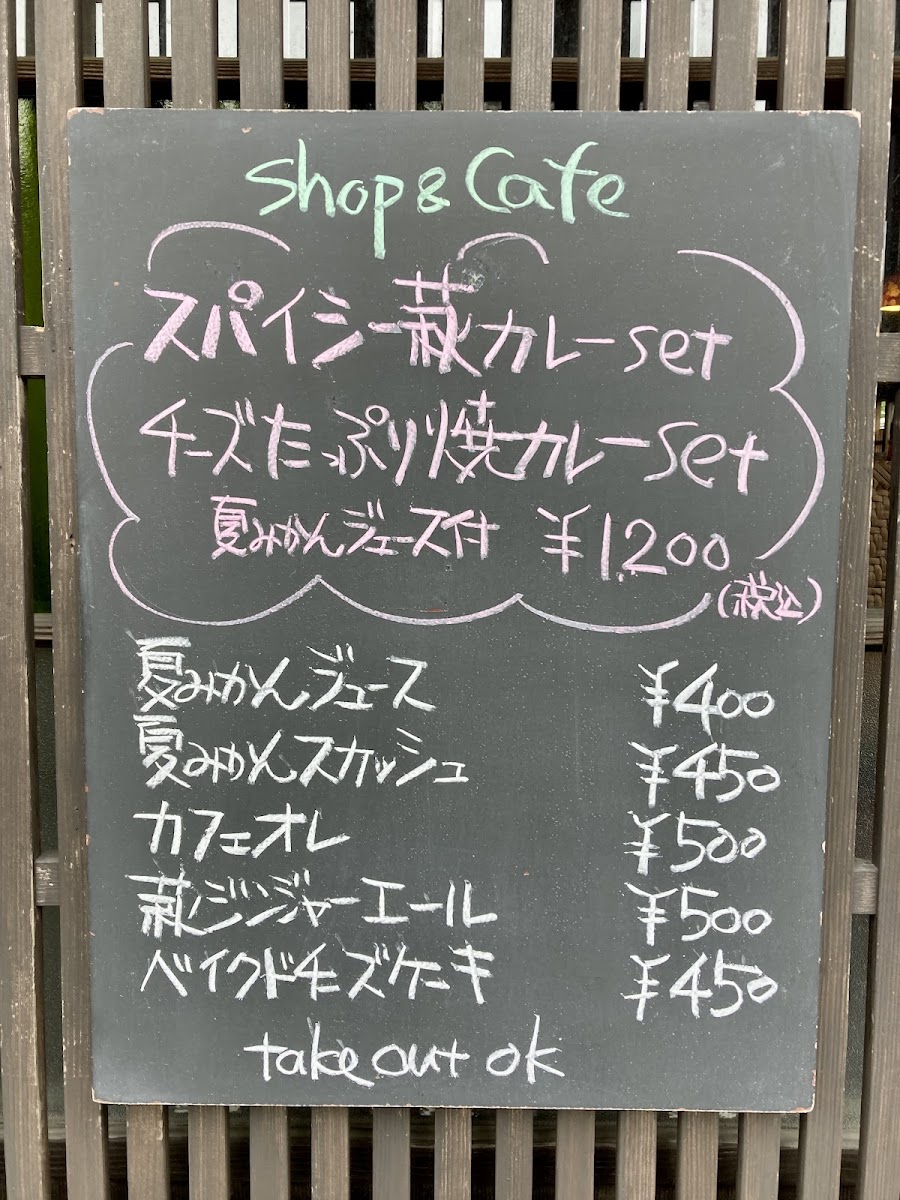 shop & Cafe
スパイシー萩カレーset
チーズたっぷり焼カレーset
夏みかんジュース付 ¥1,200
(税込)
夏みかんジュース ¥400
夏みかんスカッシュ ¥450
カフェオレ ¥500
萩ジンジャーエール ¥500
ベイクドチーズケーキ ¥450
take out ok